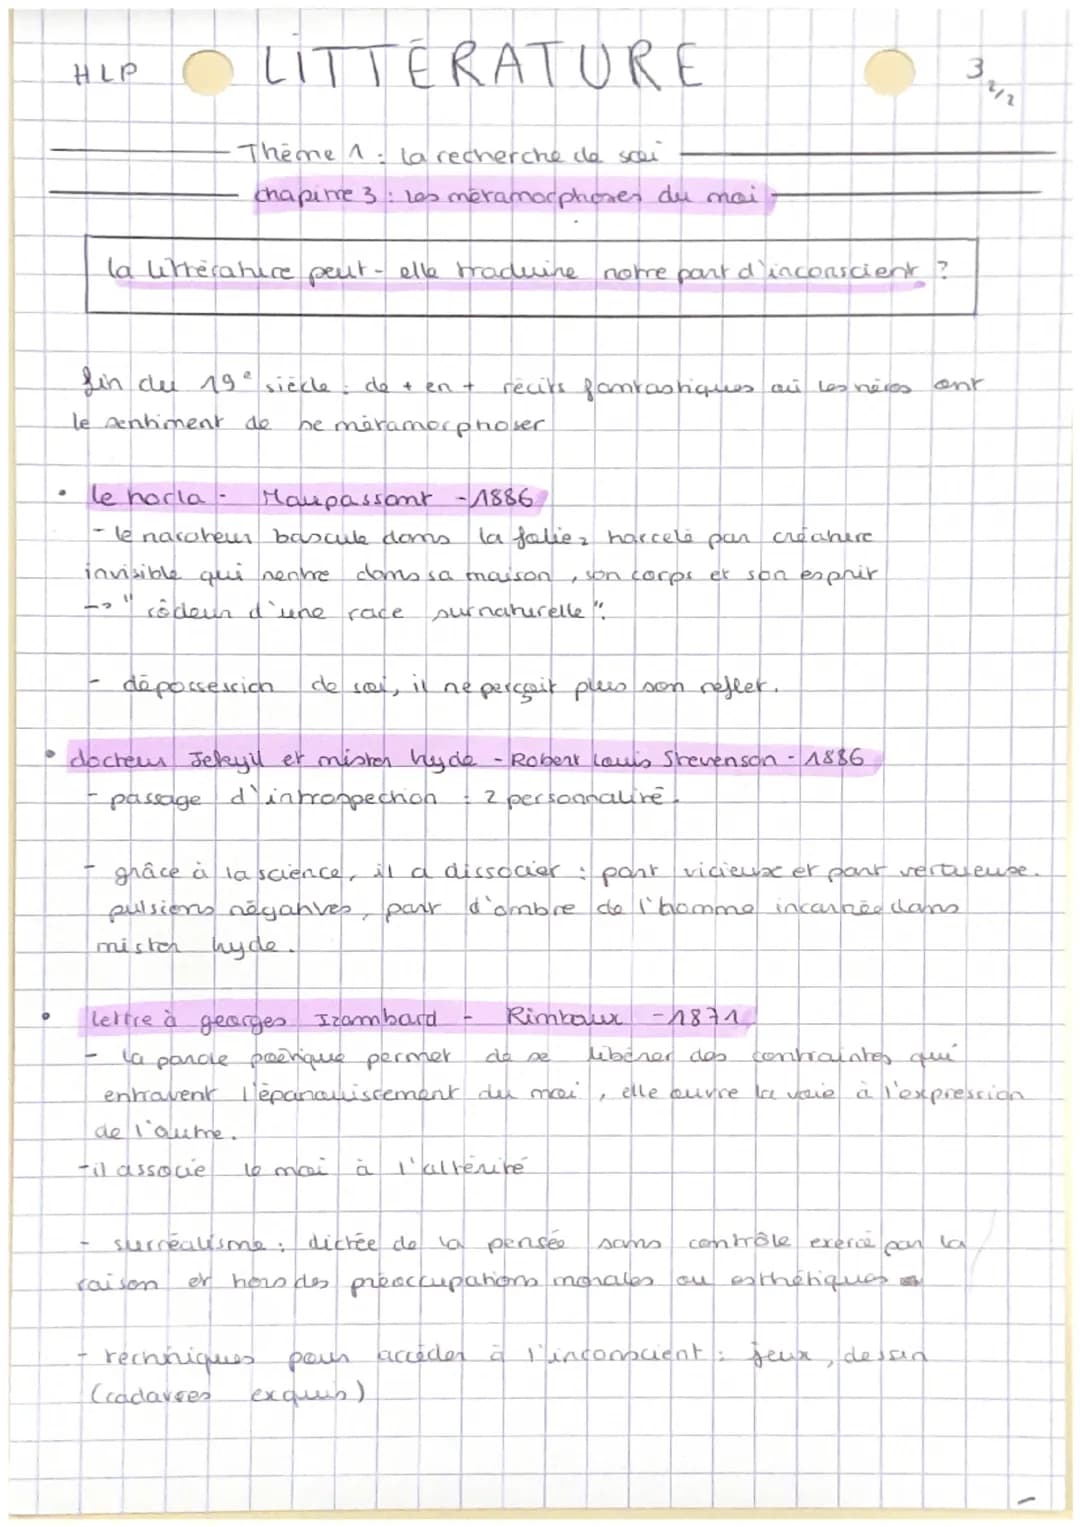 HLP LITTÉRATURE 3 2/2
Thème 1 : la recherche de soi
chapitre 3 : les métamorphoses du moi
la littérature peut-elle traduire notre part d'inconscient ?
fin du 19e siècle : de + en + récits fantastiques où les héros ont
le sentiment de se métamorphoser
• le horla - Maupassant - 1886
- le narrateur bascule dans la folie, harcelé par créature
invisible qui rentre dans sa maison, son corps et son esprit
-> "rôdeur d'une race surnaturelle".
- dépossession de soi, il ne perçoit plus son reflet.
• docteur Jekyll et mister hyde - Robert Louis Stevenson - 1886
- passage d'introspection : 2 personnalité.
- grâce à la science, il a dissocier : part vicieuse et part vertueuse.
pulsions négatives, part d'ombre de l'homme incarnée dans
mister hyde.
• lettre à georges Izambard - Rimbaux - 1871
- la parole poétique permet de se libérer des contraintes qui
entravent l'épanouissement du moi, elle ouvre la voie à l'expression
de l'autre.
- il associe le moi à l'altérité
- surréalisme : dictée de la pensée sans contrôle exercé par la
raison et hors des préoccupations morales ou esthétiques
- techniques pour accéder à l'inconscient : jeux, dessin
(cadavres exquis)